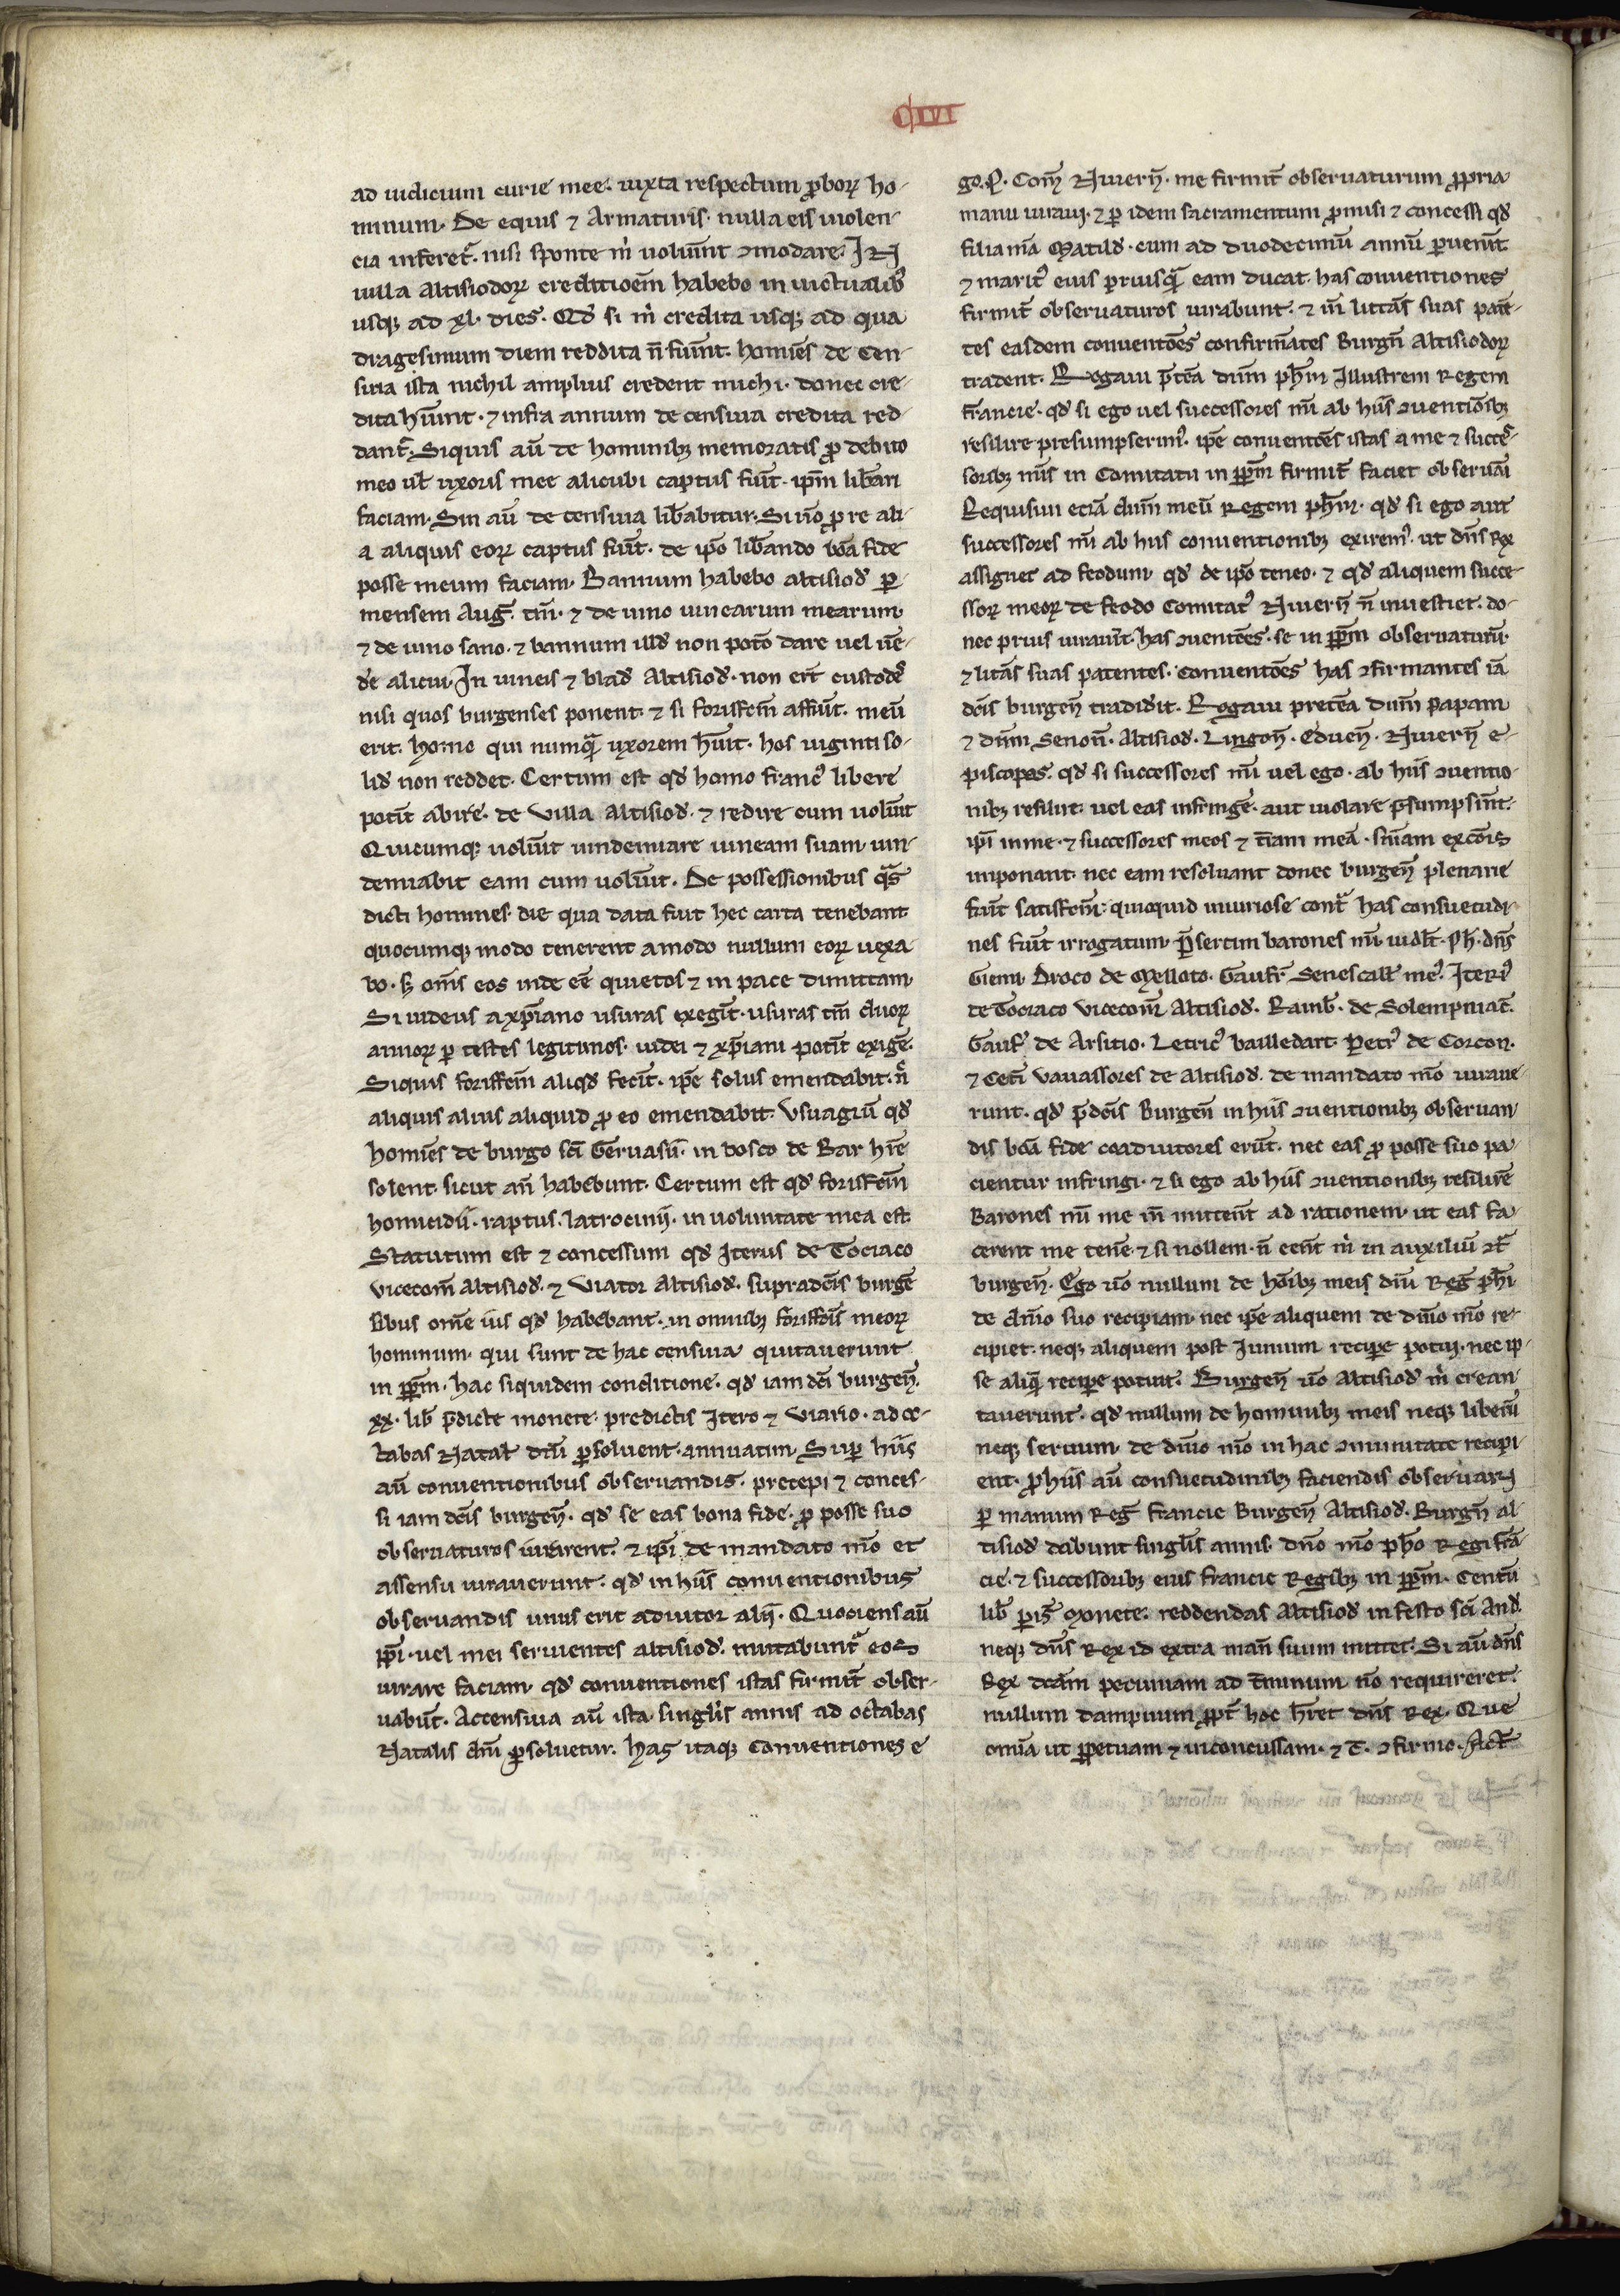 CIIII
ad iudicium curie mee. iuxta respectum ꝓborꝝ ho-
minum. De equis ⁊ Armaturis. nulla eis uiolen-
cia inferet᷑. nisi sponte m̓ uolũint ɔmodare. IN
uilla Altisiodorꝝ creditioẽm habebo in uictualib᷒
usqꝫ ad xl. dies. Qđ si m̓ credita usqꝫ ad qua
dragesimum diem reddita ñ fuĩnt. homiẽs de Cen-
siua ista nichil amplius credent michi. donec cre-
dita hũint. ⁊ infra annum de censiua credita red-
dant᷑. Siquis aũ de hominibꝫ memoratis ꝓ debito
meo uł uxoris mee alicubi captus fuĩt. ip̃m lib̃ari
faciam. Sin aũ de censiua lib̃abitur. Si ũo ꝓ re ali-
a aliquis eorꝝ captus fuĩt. de ip̃o lib̃ando bõa fide
posse meum faciam. Bannum habebo altisiođ ꝑ
mensem Aug̃. tm̃. ⁊ de uino uinearum mearum.
⁊ de uino sano. ⁊ bannum illđ non potõ dare uel uẽ-
đe alicui. In uineis ⁊ blađ Altisiođ. non erũt custođ᷒
nisi quos burgenses ponent. ⁊ si foriffc̃m affũit. meũ
erit. homo qui numq̃ uxorem hũit. hos uiginti so-
liđ non reddet. Certum est qđ homo franc᷒ libere
potĩt abire. de Villa Altisiođ. ⁊ redire cum uolũit
Quicumqꝫ uolũit uindemiare uineam suam. uin-
demiabit eam cum uolũit. De possessionibus q̃s
dicti homines die qua data fuit hec carta tenebant
quocumqꝫ modo tenerent amodo nullum eorꝝ uexa
bo. sꝫ om̃s eos inde eẽ quietos ⁊ in pace dimittam
Si iudeus a xp̃iano usuras exegĩt. usuras tm̃ duorꝝ
annorꝝ ꝑ testes legitimos. iudei ⁊ xp̃iani potĩt exigẽ.
Siquis foriffc̃m aliqđ fecĩt. ip̃e solus emendabit. ñ
aliquis alius aliquid ꝓ eo emendabit. Vsuagiũ qđ
homiẽs de burgo sc̃i Geruasii. in bosco de Bar hr̃e
solent. sicut añ habebunt. Certum est qđ foriffc̃m
homicidii. raptus. latrocinij. in uoluntate mea est.
Statutum est ⁊ concessum qđ Iterus de Tociaco
vicecom̃ Altisiođ. ⁊ Viator Altisiođ. supradc̃is burgẽ
sibus om̃e ius qđ habebant. in omnibꝫ foriffc̃is meorꝝ
hominum. qui sunt de hac censiua quitauerunt
in ꝑpm̃. hac siquidem conditione. qđ iam dc̃i burgeñ.
xx. lib̃ p̃dicte monete. predictis Itero ⁊ Viario. ad oc-
tabas Natał dñi ꝑsoluent. annuatim. Suꝑ hiis
aũ conuentionibus obseruandis. precepi ⁊ conces-
si iam dc̃is burgeñ. qđ se eas bona fide. ꝓ posse suo
obseruaturos iurarent. ⁊ ip̃i de mandato mõ et
assensu iurauerunt. qđ in hiis conuentionibus
obseruandis unus erit adiutor alĩ. Quociens aũ
ip̃i. uel mei seruientes altisiođ. mutabunt᷑ eos
iurare faciam. qđ conuentiones istas firmit᷑ obser-
uabũt. Accensiua aũ ista singl̃is annis ad octabas
Natalis dñi ꝑsoluetur. has itaqꝫ Conuentiones e
go. P. Com̃ Niuerñ. me firmit᷑ obseruaturum ꝓpria
manu iuraui. ⁊ ꝑ idem sacramentum ꝓmisi ⁊ concessi qđ
filia mã Matilđ. cum ad duodecimũ annũ ꝑuenĩt
⁊ marit᷒ eius priusq̃ eam ducat. has conuentiones
firmit᷑ obseruaturos iurabunt. ⁊ in litt̃as suas patẽ-
tes easdem conuentõẽs confirm̃ates Burgñ Altisiodorꝝ
tradent. Rogaui p̃tẽa dñm ph̃m Illustrem Regem
francie. qđ si ego uel successores mĩ ab hiis ɔuentioĩbꝫ
resilire presumpserim᷒. ip̃e conuentõẽs istas a me ⁊ succẽs-
soribꝫ mĩs in Comitatu in ꝑpm̃ firmit᷑ faciet obseruãi
Requisiui eciã dñm meũ Regem ph̃m. qđ si ego aut
successores mĩ ab hiis conuentionibꝫ exirem᷒. ut dñs Rex
assignet ad feodum qđ de ip̃o teneo. ⁊ qđ aliquem succe-
ssorꝝ meorꝝ de feodo Comitat᷒ Niuerñ ñ inuestiet. do-
nec prius iurauĩt. has ɔuentõẽs. se in ꝑpm̃ obseruaturũ.
⁊ litãs suas patentes. Conuentõẽs has ɔfirmantes iã
dc̃is burgeñ tradidĩt. Rogaui pretẽa dñm papam
⁊ dñm Senoñ. Altisiođ. Lingoñ. Edueñ. Niuerñ e-
piscopos. qđ si successores mĩ uel ego. ab hiis ɔuentio-
nibꝫ resiliĩt. uel eas infringẽ. aut uiolare p̃sumpsĩnt.
ip̃i in me. ⁊ successores meos ⁊ t̃ram meã. sñiam excõis
imponant. nec eam resoluant donec burgeñ plenarie
fuĩt satisfc̃m. quicquid iniuriose cont̃ has consuetudi-
nes fuĩt irrogatum. P̃sertim barones mĩ. uidłt. Ph̃. dñs
Giemi. Droco de Melloto. Gaufr̃ Senescall᷑ me᷒. Iteri᷒
de Tociaco vicecom̃ Altisiođ. Rainb̃. de Solempniac̃.
Gauf̃ de Arsitio. Letric᷒ bailledart. Petr᷒ de Corcon.
⁊ Cet̃i vauassores de Altisiođ. de mandato mõ iuraue-
runt. qđ p̃dc̃is Burgeñ in hiis ɔuentionibꝫ obseruan
dis bõa fide coadiutores erũt. nec eas ꝓ posse suo pa
cientur infringi. ⁊ si ego ab hiis ɔuentionibꝫ resilirẽ
Barones mĩ me in mittent ad rationem. ut eas fa-
cerent me tenẽ ⁊ si nollem. ñ eẽnt m̓ in auxiliũ ɔt̃
burgeñ. Ego ũo nullum de hõibꝫ meis dñi Reg̃ ph̃i
de dñio suo recipiam. nec ip̃e aliquem de dñio mõ re-
cipiet. neqꝫ aliquem post Iunium reciꝑe potui. nec ip-
se aliq̃ reciꝑe potuit. Burgeñ ũo Altisiođ m̓ crean
tauerunt. qđ nullum de hominibꝫ meis neqꝫ liberũ
neqꝫ seruum. de dñio mõ in hac ɔmunitate recipi-
ent. ꝓ hiis aũ consuetudinibꝫ faciendis obseruari
ꝑ manum Reg̃ francie Burgeñ Altisiođ. Burgñ al-
tisiođ dabunt singl̃is annis. dño mõ ph̃o Regi frã
cie. ⁊ successoribꝫ eius francie Regibꝫ in ꝑpm̃. Centũ
lib̃ paris̃ Monete. reddendas Altisiođ in festo sc̃i And̃.
neqꝫ dñs Rex id extra mañ suum mittet. Si aũ dñs
Rex dc̃am pecuniam ad t̃minum ñõ requireret.
nullum dampnum ꝓpt᷑ hoc hr̃et dñs Rex. Que
omĩa ut ꝑpetuam ⁊ inconcussam. ⁊ c̃. ɔfirmo. Act̃